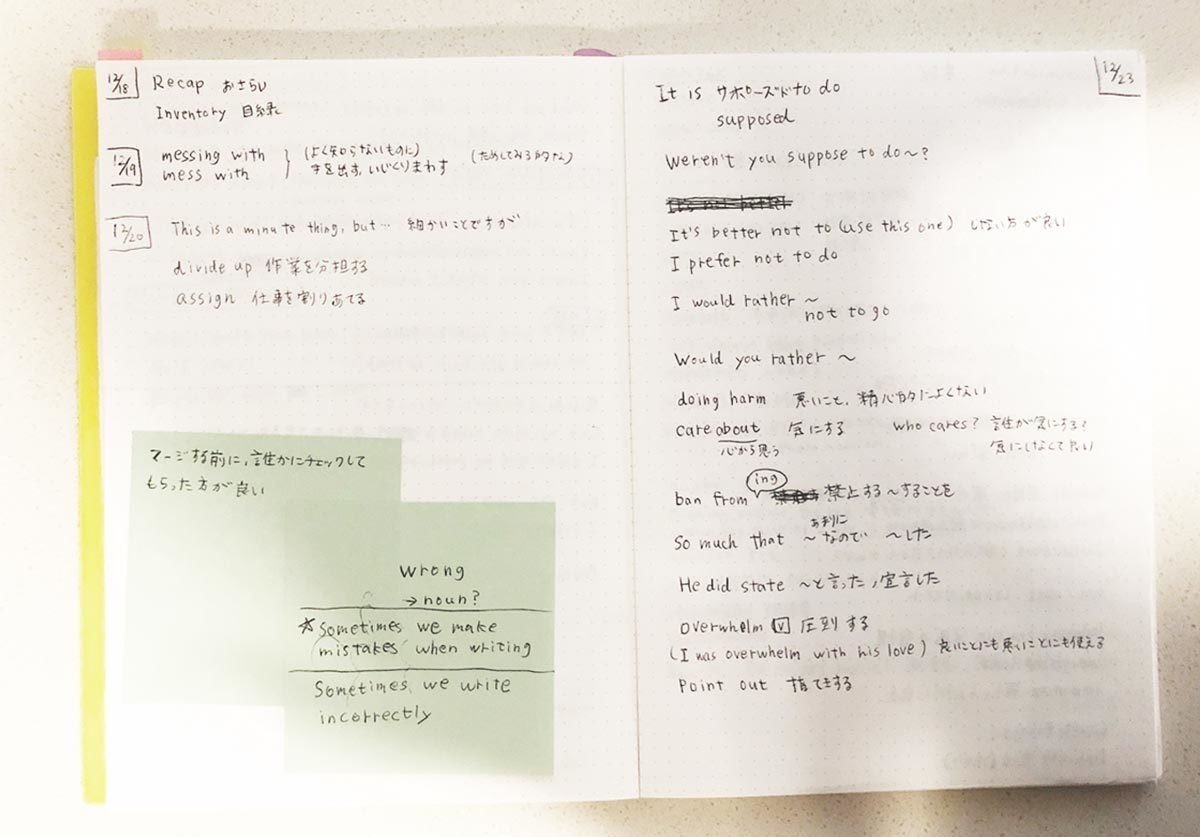 12/18 Recap おさらい
Inventory 目録
12/19 messing with (よく知らないものに) (ためしてみる的な)
mess with 手を出す、いじくりまわす
12/20 This is a minute thing, but… 細かいことですが
divide up 作業を分担する
assign 仕事を割りあてる
マージする前に、誰かにチェックして
もらった方が良い
wrong
→ noun?
☆ Sometimes we make
mistakes when writing
Sometimes we write
incorrectly
12/23
It is サポーズド to do
supposed
Weren't you suppose to do~?
It's not better
It's better not to (use this one) しない方が良い
I prefer not to do
I would rather ~
not to go
Would you rather ~
doing harm 悪いこと、精神的によくない
care about 気にする who cares? 誰が気にする?
心から思う 気にしなくて良い
ing
ban from 禁止する ~することを
あまりに
So much that ~なので ~した
He did state ~と言った、宣言した
overwhelm V 圧倒する
(I was overwhelm with his love) 良いことにも悪いことにも使える
Point out 指てきする